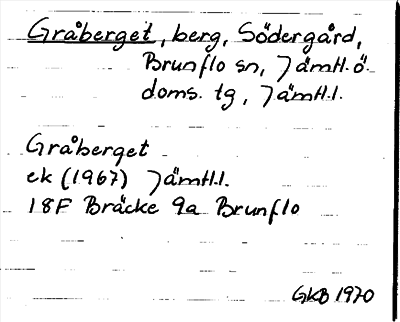 Gråberget, berg, Södergård,
Brunflo sn, Jämtl. ö.
doms. tg, Jämtl. l.
Gråberget
ek (1967) Jämtl. l.
18F Bräcke 9a Brunflo
GKB 1970